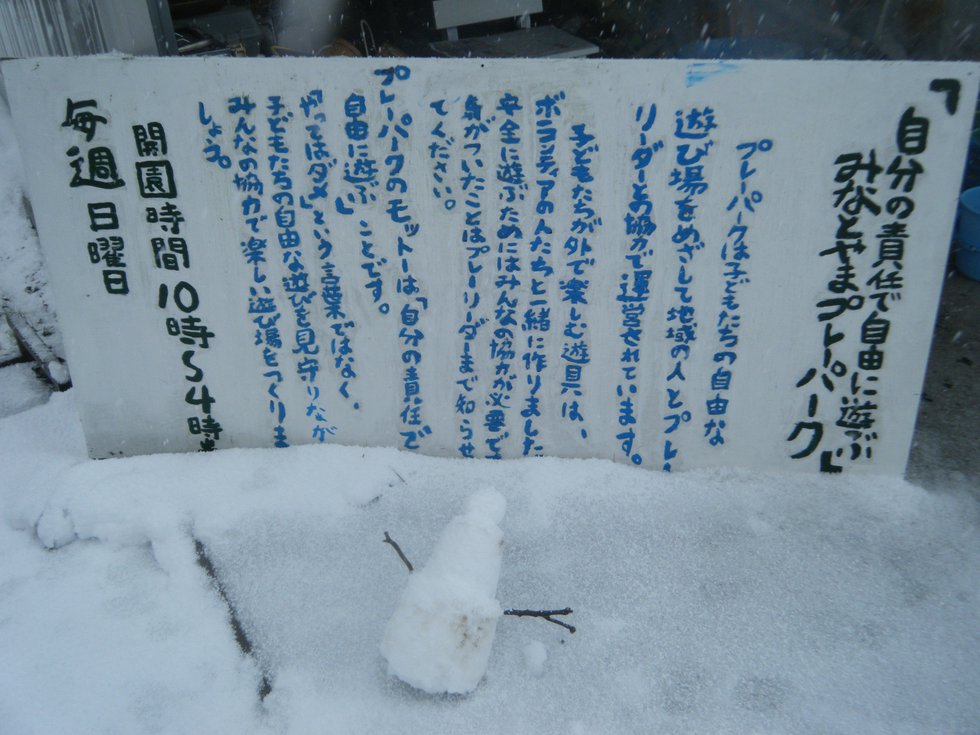 「自分の責任で自由に遊ぶ
みなとやまプレーパーク」
プレーパークは子どもたちの自由な
遊び場をめざして地域の人とプレー
リーダーとの協力で運営されています。
子どもたちが外で楽しむ遊具は、
ボランティアの人たちと一緒に作りました
安全に遊ぶためにはみんなの協力が必要です
身がついたことはプレーリーダーまで知らせ
てください。
プレーパークのモットーは「自分の責任で
自由に遊ぶ」ことです。
「やってはダメ」という言葉ではなく、
子どもたちの自由な遊びを見守りなが
みんなの協力で楽しい遊び場をつくりま
しょう。
開園時間 10時〜4時
毎週日曜日